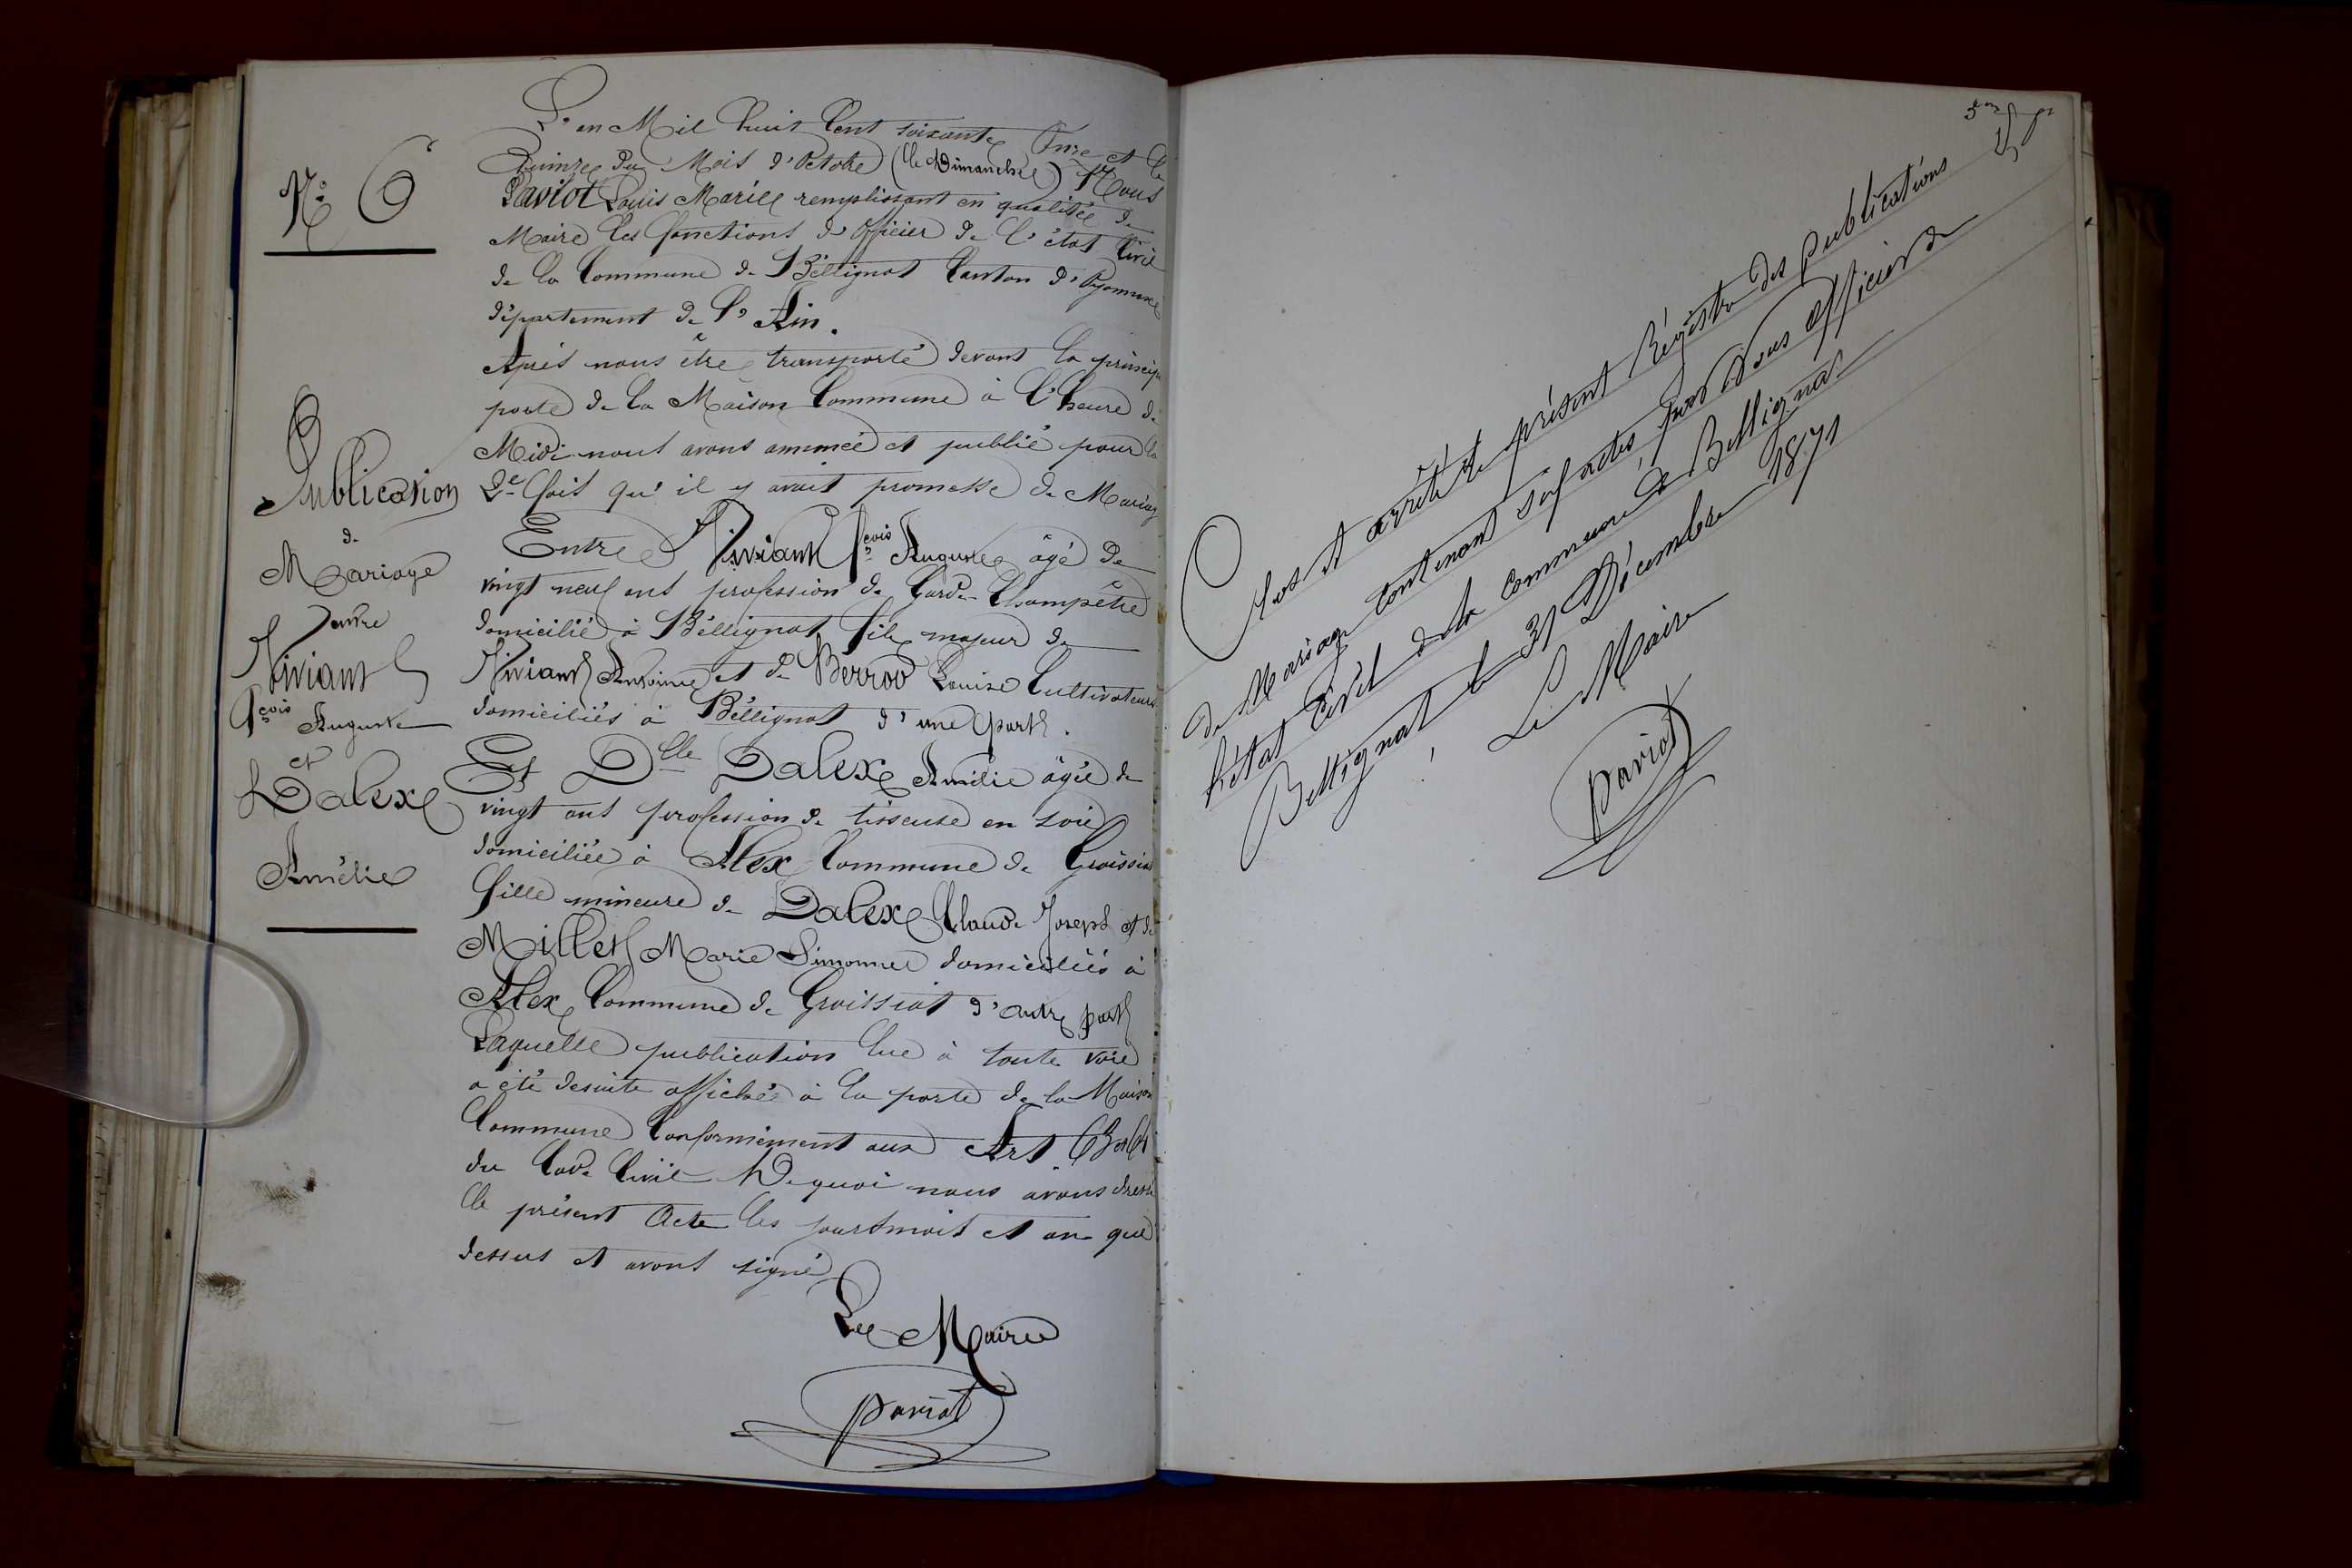 N° 6
Publication
de
Mariage
Entre
Niviant
fçois Auguste
et
Dalex
Amélie
L'an Mil huit Cent soixante Onze et le
Quinze du Mois d'Octobre (le Dimanche) Nous
Paviot Louis Marie remplissant en qualitée de
Maire les fonctions d'Officier de l'état Civil
de la Commune de Béllignat Canton d'Oyonnax
département de l'Ain.
Après nous être transporté devant la princip
porte de la Maison Commune à l'heure de
Midi nous avons annoncé et publié pour la
2e fois qu'il y avait promesse de Mariag
Entre Niviant fçois Auguste âgé de
vingt neuf ans profession de Garde Champêtre
domicilié à Béllignat fils majeur de
Niviant Antoine et de Berrod Louise Cultivateurs
domiciliés à Béllignat d'une part.
Et Dlle Dalex Amélie âgée de
vingt ans profession de tisseuse en soie
domiciliée à Alex Commune de Groissiat
fille mineure de Dalex Claude Joseph et de
Millet Marie Simonne domiciliés à
Alex Commune de Groissiat d'autre part
Laquelle publication lue à toute voie
a été desuite affichée à la porte de la Maison
Commune Conformément aux Art. 63 et 64
du Code Civil De quoi nous avons dressé
le présent Acte les jours mois et an que
dessus et avons signé
Le Maire
Paviot
Clos et arrêté le présent Régistre des publications
de Mariage contenant six actes par Nous officier de
l'état Civil de la commune de Bellignat
Bellignat le 31 Décembre 1871
Le Maire
Paviot